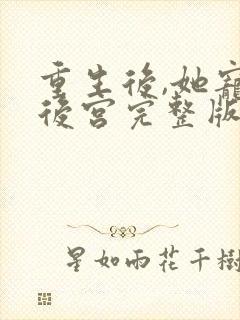 重生後,她寵
後宮完整版
星如雨花千樹